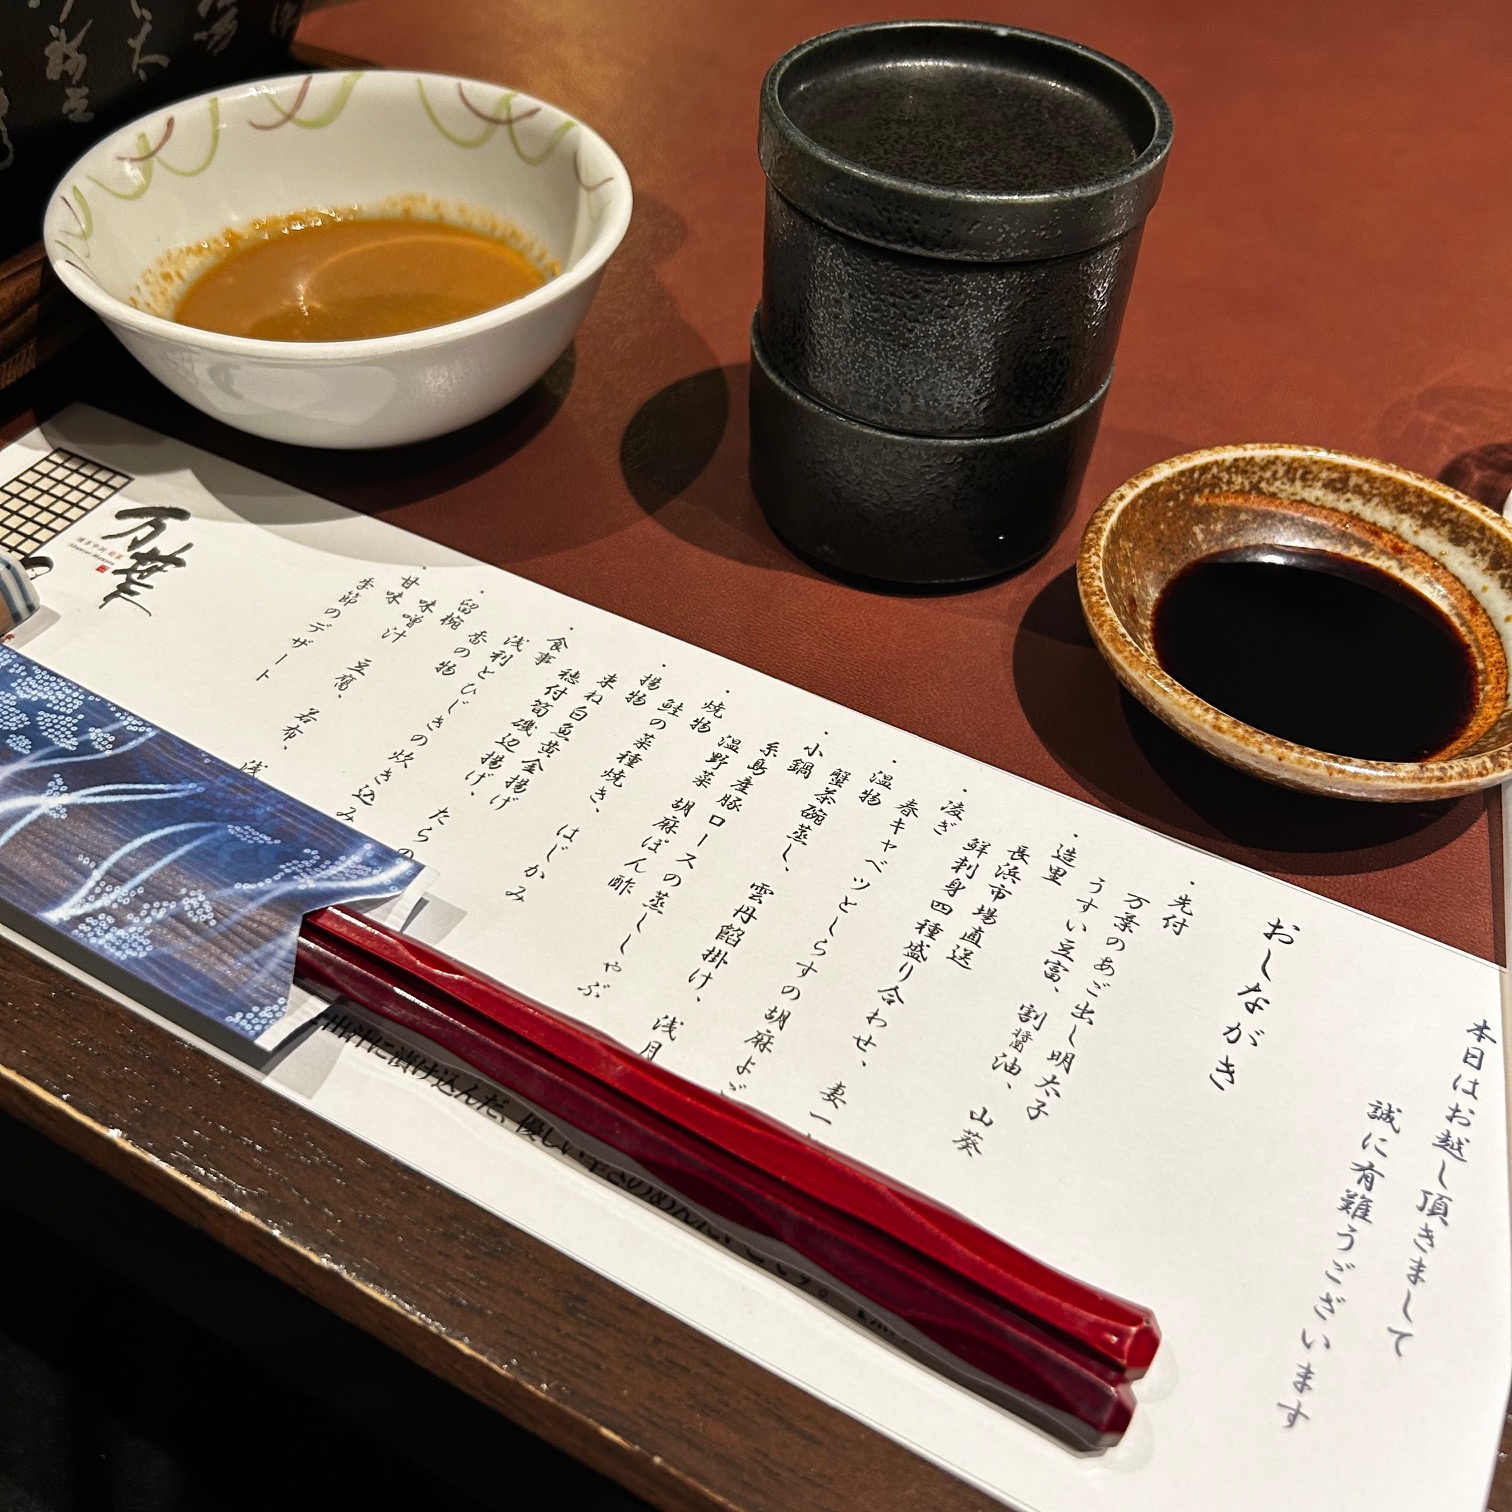 本日はお越し頂きまして
誠に有難うございます
おしながき
・先付
万葉のあご出し明太子
うすい豆富、割醤油、山葵
・造里
長浜市場直送
鮮刺身四種盛り合わせ、妻一
・凌ぎ
春キャベツとしらすの胡麻よご
・温物
蟹茶碗蒸し、雲丹餡掛け、浅月
・小鍋
糸島産豚ロースの蒸ししゃぶ
温野菜 胡麻ぽん酢
・焼物
鮭の菜種焼き、はじかみ
・揚物
束ね白魚黄金揚げ
穂付筍磯辺揚げ、たらの
・食事
浅利とひじきの炊き込み
香の物
・留椀
味噌汁 豆腐、若布、浅
・甘味
季節のデザート
万葉
出汁に漬け込んだ、優しい辛さのめんたいこです。